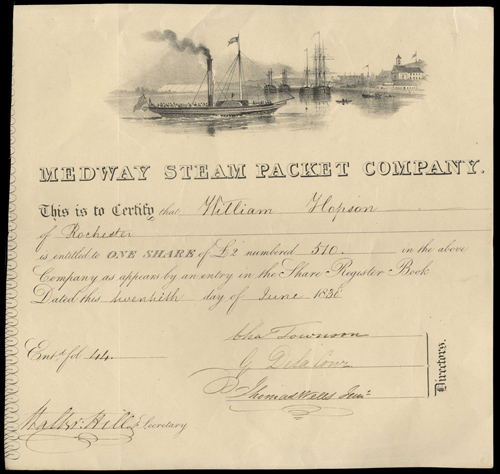 MEDWAY STEAM PACKET COMPANY.
This is to Certify that William Hopson
of Rochester
is entitled to ONE SHARE of £2 numbered 510 in the above
Company as appears by an entry in the Share Register Book
Dated this twentieth day of June 183
Cha Townson
Entd. fol 44
G Delacour
Thomas Wells Junr
Directors.
Walter Hill Secretary